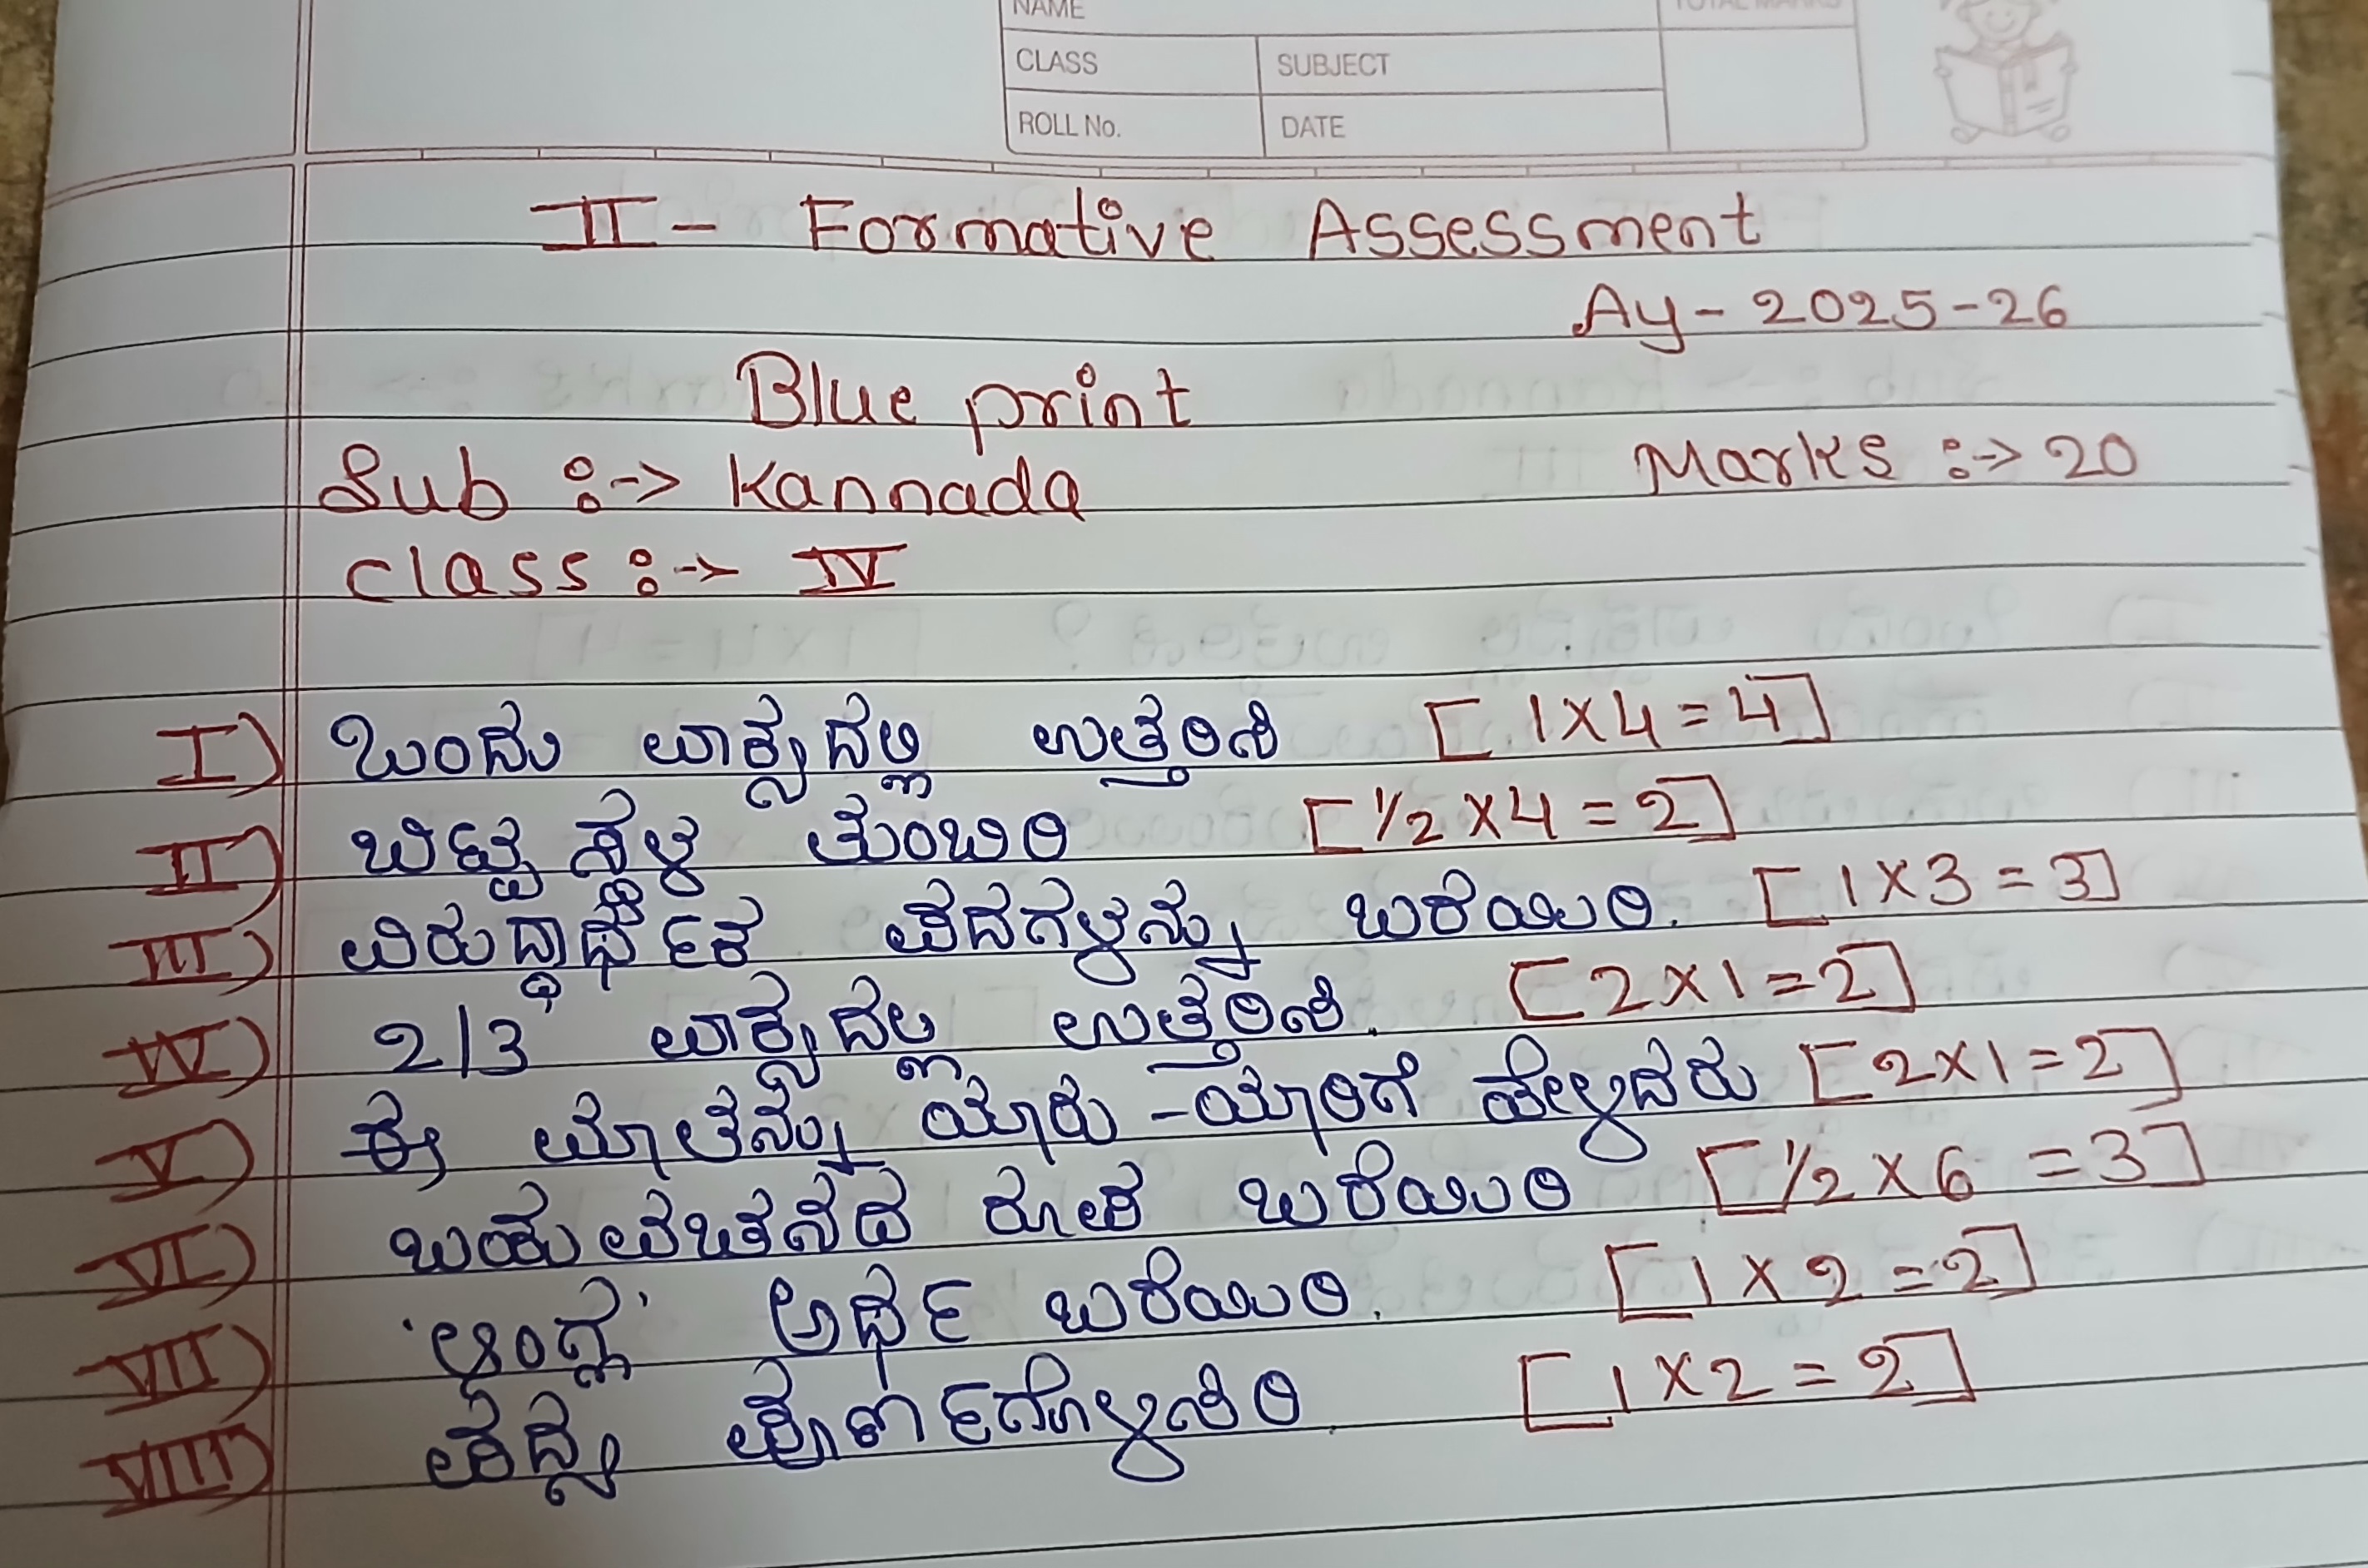 NAME
TOTAL MARKS
CLASS
SUBJECT
ROLL No.
DATE
II - Formative Assessment
Ay - 2025-26
Blue print
Sub :-> Kannada
Marks :-> 20
class :-> IV
I) ಒಂದು ವಾಕ್ಯದಲ್ಲಿ ಉತ್ತರಿಸಿ [1×4=4]
II) ಬಿಟ್ಟ ಸ್ಥಳ ತುಂಬಿರಿ [½×4=2]
III) ವಿರುದ್ಧಾರ್ಥಕ ಪದಗಳನ್ನು ಬರೆಯಿರಿ. [1×3=3]
IV) 2/3 ವಾಕ್ಯದಲ್ಲಿ ಉತ್ತರಿಸಿ. [2×1=2]
V) ಈ ಮಾತನ್ನು ಯಾರು -ಯಾರಿಗೆ ಹೇಳಿದರು [2×1=2]
VI) ಬಹುವಚನದ ರೂಪ ಬರೆಯಿರಿ [½×6=3]
VII) 'ಆಂಗ್ಲ' ಅರ್ಥ ಬರೆಯಿರಿ. [1×2=2]
VIII) ಪದ್ಯ ಪೂರ್ಣಗೊಳಿಸಿರಿ. [1×2=2]